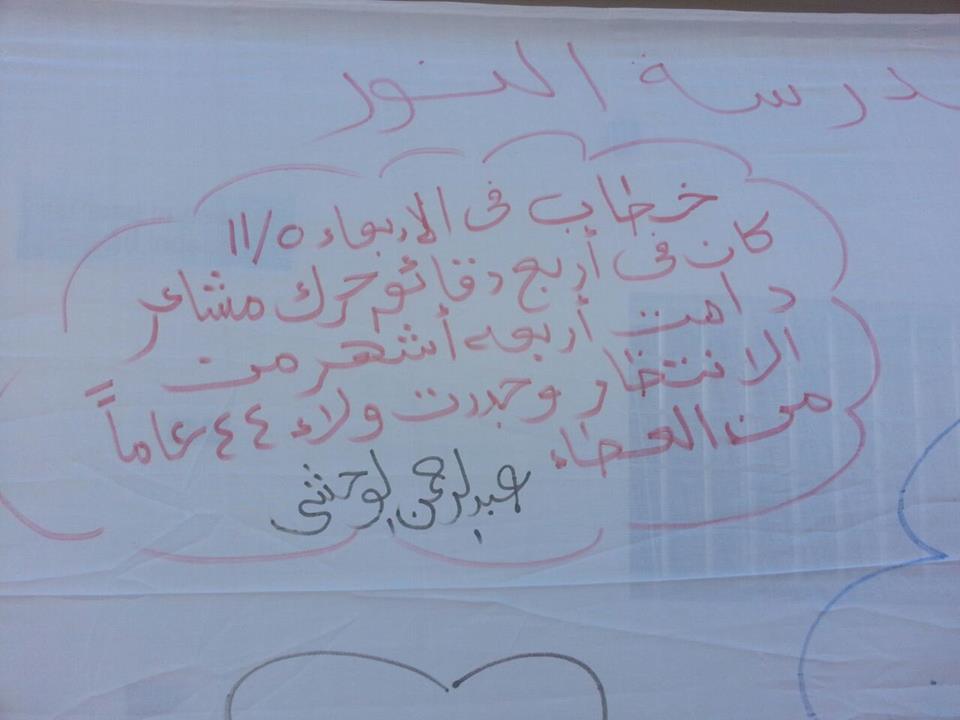 مدرسة النور
خطاب فى الاربعاء ١١/٥
كان فى أربع دقائق حرك مشاعر
دامت أربعه أشهر من
الانتظار وجددت ولاء ٤٤ عاماً
من العطاء
عبدالرحمن الوحشي